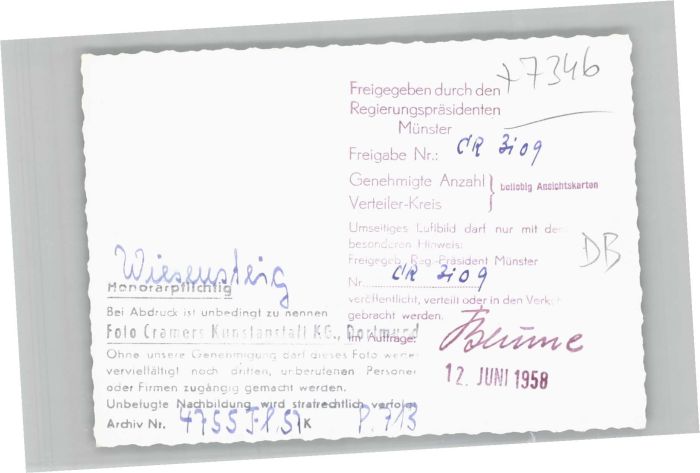 x7346
Freigegeben durch den
Regierungspräsidenten
Münster
Freigabe Nr.: CR 3109
Genehmigte Anzahl } beliebig Ansichtskarten
Verteiler-Kreis
Umseitiges Luftbild darf nur mit dem
besonderen Hinweis:
Freigegeb. Reg.-Präsident Münster
DB
Nr. CR 3109
veröffentlicht, verteilt oder in den Verkehr
gebracht werden.
Im Auftrage:
Blume
12. JUNI 1958
Wiesensteig
Honorarpflichtig
Bei Abdruck ist unbedingt zu nennen
Foto Cramers Kunstanstalt KG., Dortmund
Ohne unsere Genehmigung darf dieses Foto weder
vervielfältigt noch dritten, unberufenen Personen
oder Firmen zugängig gemacht werden.
Unbefugte Nachbildung wird strafrechtlich verfolgt
Archiv Nr. 4755 K P. 713